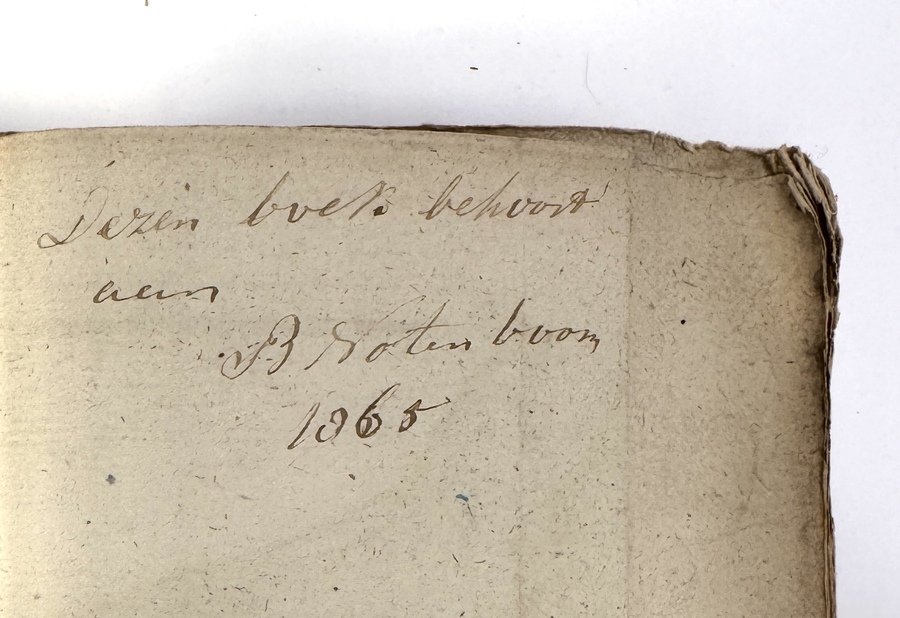 Dezen boek behoort
aan
B Notenboom
1865